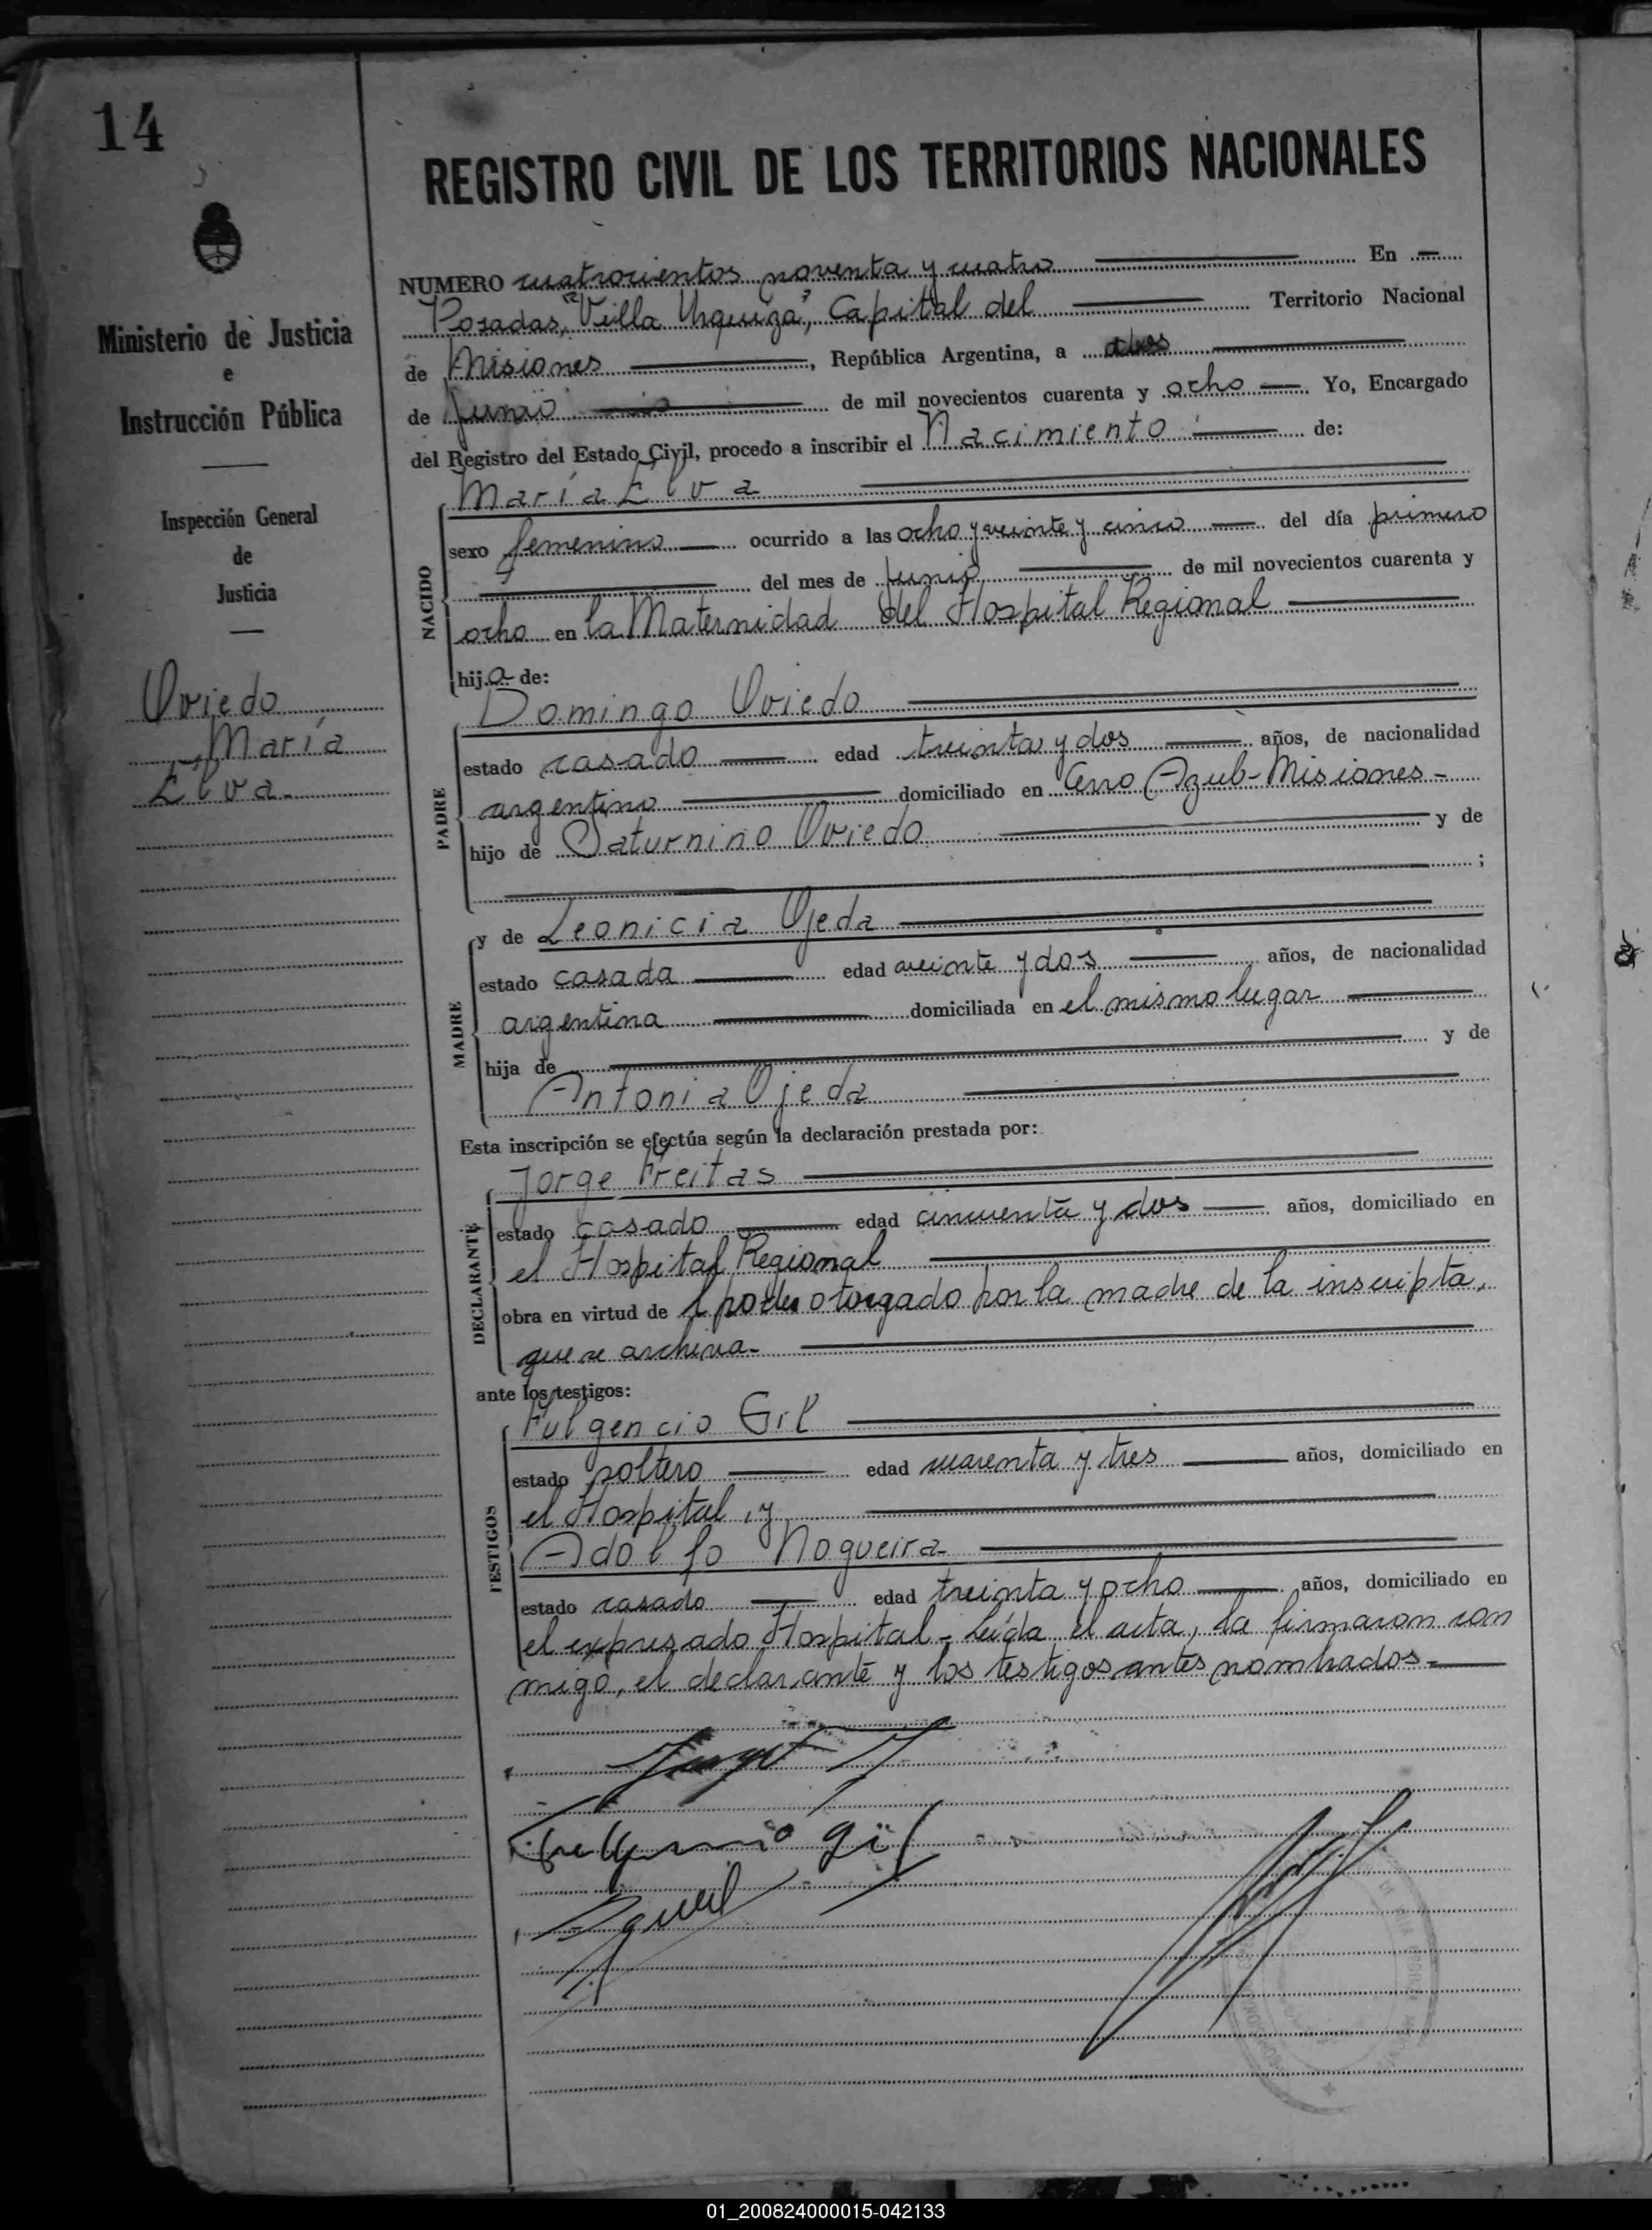 14
REGISTRO CIVIL DE LOS TERRITORIOS NACIONALES
Ministerio de Justicia
e
Instrucción Pública
Inspección General
de
Justicia
Oviedo
María
Elva.
NUMERO cuatrocientos noventa y cuatro En
Posadas, "Villa Urquiza", Capital del Territorio Nacional
de Misiones, República Argentina, a dos
de Junio de mil novecientos cuarenta y ocho Yo, Encargado
del Registro del Estado Civil, procedo a inscribir el Nacimiento de:
NACIDO
María Elva
sexo femenino ocurrido a las ocho y veinte y cinco del día primero
del mes de junio de mil novecientos cuarenta y
ocho en la Maternidad del Hospital Regional
hija de:
PADRE
Domingo Oviedo
estado casado edad treinta y dos años, de nacionalidad
argentino domiciliado en Cerro Azul-Misiones-
hijo de Saturnino Oviedo y de
;
MADRE
y de Leonicia Ojeda
estado casada edad veinte y dos años, de nacionalidad
argentina domiciliada en el mismo lugar
hija de y de
Antonia Ojeda
Esta inscripción se efectúa según la declaración prestada por:
DECLARANTE
Jorge Freitas
estado casado edad cincuenta y dos años, domiciliado en
el Hospital Regional
obra en virtud de l poder otorgado por la madre de la inscripta,
que se archiva-
ante los testigos:
TESTIGOS
Fulgencio Gil
estado soltero edad cuarenta y tres años, domiciliado en
el Hospital, y
Adolfo Nogueira-
estado casado edad treinta y ocho años, domiciliado en
el expresado Hospital- Leída el acta, la firmaron con
migo, el declarante y los testigos antes nombrados-
Fulgencio Gil
01_200824000015-042133